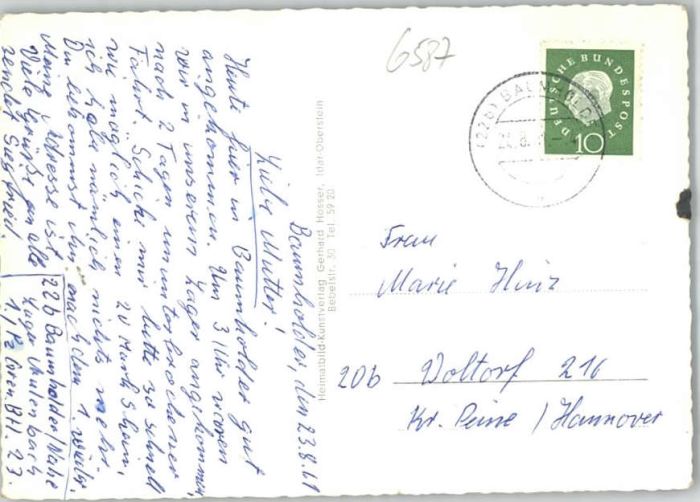 Baumholder, den 23.8.61
Liebe Mutter!
Heute hier in Baumholder gut
angekommen. Um 3 Uhr waren
wir in unserem Lager angekommen,
nach 2 Tagen ununterbrochener
Fahrt. Schicke mir bitte so schnell
wie möglich einen 20 Mark Schein,
ich habe nämlich nichts mehr.
Du bekommst ihn nach dem 1. wieder.
Meine Adresse ist 22b Baumholder/Nahe
Viele Grüße an alle Lager Aulenbach
sendet Siegfried. 1./Pz Gren Btl. 23
Heimatbild-Kunstverlag Gerhard Hosser, Idar-Oberstein
Bebelstr. 30 Tel. 59 20
6587
DEUTSCHE BUNDESPOST
10
(22b) BAUMHOLDER
Frau
Marie Hinz
20b Voltorf 216
Kr. Peine / Hannover